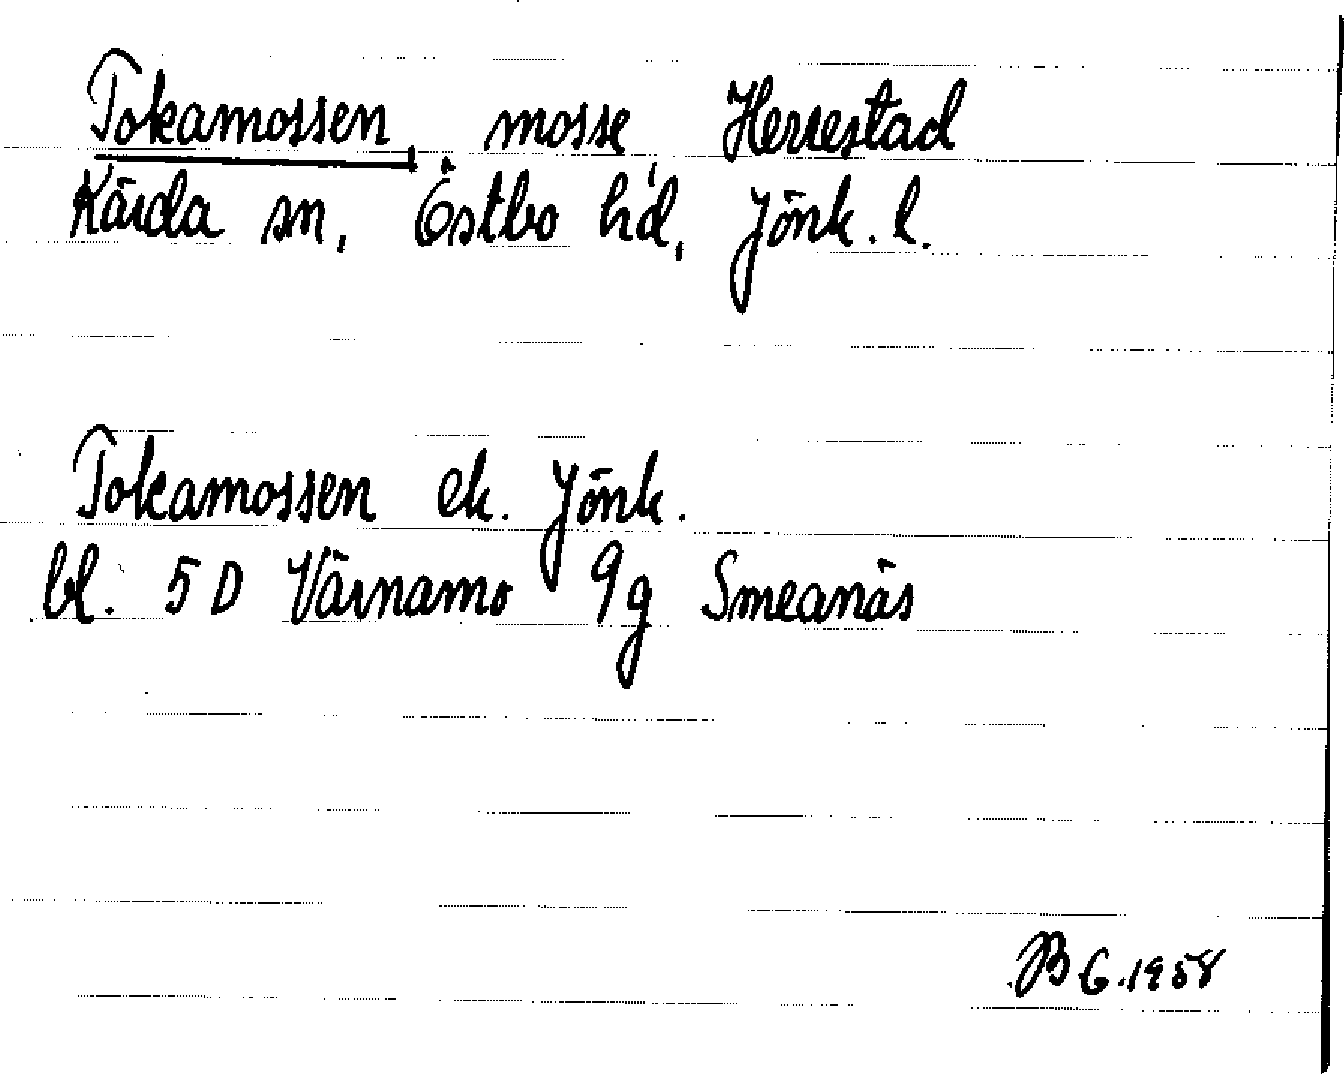 Tokamossen, mosse Herrestad
Kärda sn, Östbo hd, Jönk. l.
Tokamossen ek. Jönk.
bl. 5 D Värnamo 9g Smeanäs
B G. 1958